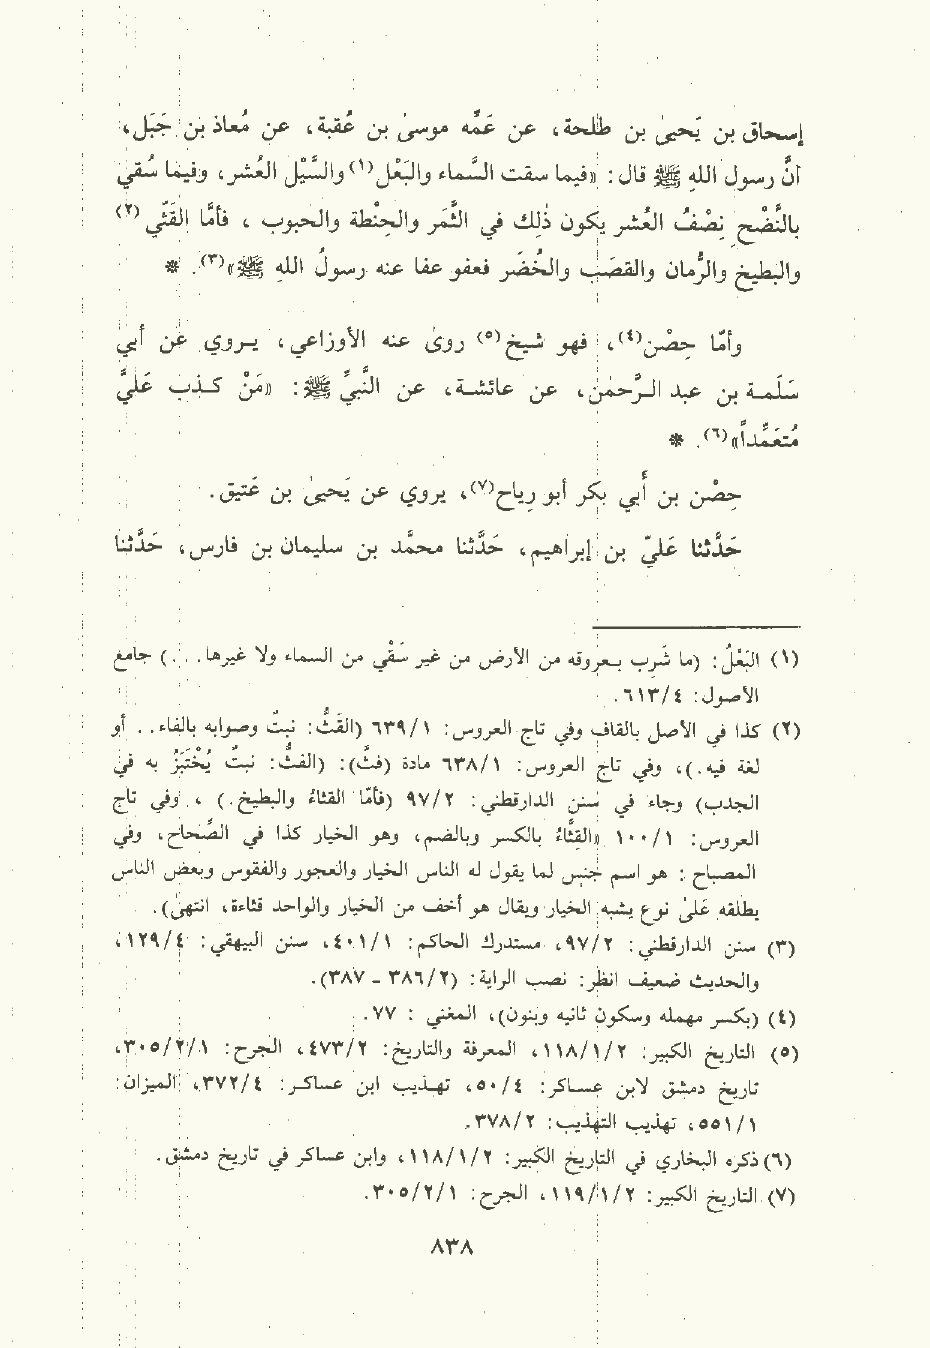 إسحاق بن يَحيىٰ بن طلحة، عن عَمِّه موسىٰ بن عُقبة، عن مُعاذ بن جَبَل،
أنَّ رسول اللهِ ﷺ قال: «فيما سقت السَّماء والبَعْل(١) والسَّيْل العُشر، وفيما سُقي
بالنَّضْحِ نِصْفُ العُشر يكون ذٰلِك في الثَّمَر والحِنْطة والحبوب، فأمَّا القَثّي(٢)
والبطيخ والرُّمان والقصَب والخُضَر فعفو عفا عنه رسولُ اللهِ ﷺ»(٣). *
وأمّا حِصْن(٤)، فهو شيخ(٥) روىٰ عنه الأوزاعي، يروي عن أبي
سَلَمة بن عبد الرَّحمٰن، عن عائشة، عن النَّبيِّ ﷺ: «مَنْ كذب عَليَّ
مُتَعَمِّداً»(٦). *
حِصْن بن أبي بكر أبو رِياح(٧)، يروي عن يَحيىٰ بن عَتيق.
حَدَّثنا عَليّ بن إبراهيم، حَدَّثنا محمَّد بن سليمان بن فارس، حَدَّثنا
(١) البَعْلُ: (ما شَرِب بعروقه من الأرض من غير سَقْي من السماء ولا غيرها...) جامع
الأصول: ٦١٣/٤.
(٢) كذا في الأصل بالقاف وفي تاج العروس: ٦٣٩/١ (القَثُّ: نبتٌ وصوابه بالفاء.. أو
لغة فيه.)، وفي تاج العروس: ٦٣٨/١ مادة (فثّ): (الفثُّ: نبتٌ يُخْتَبَزُ به في
الجدب) وجاء في سنن الدارقطني: ٩٧/٢ (فأمّا القثاءُ والبطيخ.)، وفي تاج
العروس: ١٠٠/١ «القِثَّاءُ بالكسر وبالضم، وهو الخيار كذا في الصَّحاح، وفي
المصباح: هو اسم جنس لما يقول له الناس الخيار والعجور والفقوس وبعض الناس
يطلقه عَلىٰ نوع يشبه الخيار ويقال هو أخف من الخيار والواحد قثاءة، انتهىٰ).
(٣) سنن الدارقطني: ٩٧/٢، مستدرك الحاكم: ٤٠١/١، سنن البيهقي: ١٢٩/٤،
والحديث ضعيف انظر: نصب الراية: (٣٨٦/٢ - ٣٨٧).
(٤) (بكسر مهمله وسكون ثانيه وبنون)، المغني: ٧٧.
(٥) التاريخ الكبير: ١١٨/١/٢، المعرفة والتاريخ: ٤٧٣/٢، الجرح: ٣٠٥/٢/١،
تاريخ دمشق لابن عساكر: ٥٠/٤، تهذيب ابن عساكر: ٣٧٢/٤، الميزان:
٥٥١/١، تهذيب التهذيب: ٣٧٨/٢.
(٦) ذكره البخاري في التاريخ الكبير: ١١٨/١/٢، وابن عساكر في تاريخ دمشق.
(٧) التاريخ الكبير: ١١٩/١/٢، الجرح: ٣٠٥/٢/١.
٨٣٨